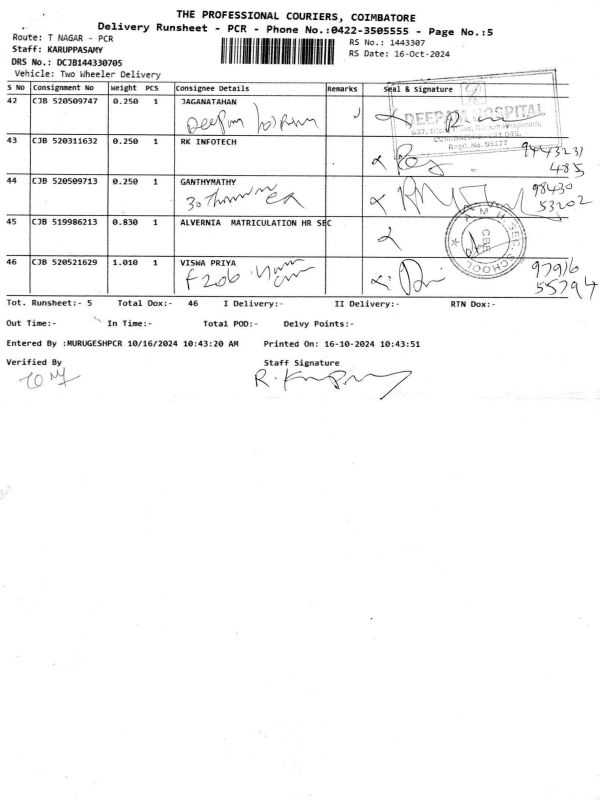 THE PROFESSIONAL COURIERS, COIMBATORE
Delivery Runsheet - PCR - Phone No.:0422-3505555 - Page No.:5
Route: T NAGAR - PCR
RS No.: 1443307
Staff: KARUPPASAMY
RS Date: 16-Oct-2024
DRS No.: DCJB144330705
Vehicle: Two Wheeler Delivery
S No Consignment No Weight PCS Consignee Details Remarks Seal & Signature
42 CJB 520509747 0.250 1 JAGANATAHAN
DEEPAM HOSPITAL
Regd. No. 58177
43 CJB 520311632 0.250 1 RK INFOTECH
9443231
485
44 CJB 520509713 0.250 1 GANTHYMATHY
98430
53202
45 CJB 519986213 0.830 1 ALVERNIA MATRICULATION HR SEC
SCHOOL
46 CJB 520521629 1.010 1 VISWA PRIYA
F206
97916
55794
Tot. Runsheet:- 5 Total Dox:- 46 I Delivery:- II Delivery:- RTN Dox:-
Out Time:- In Time:- Total POD:- Delvy Points:-
Entered By :MURUGESHPCR 10/16/2024 10:43:20 AM Printed On: 16-10-2024 10:43:51
Verified By Staff Signature